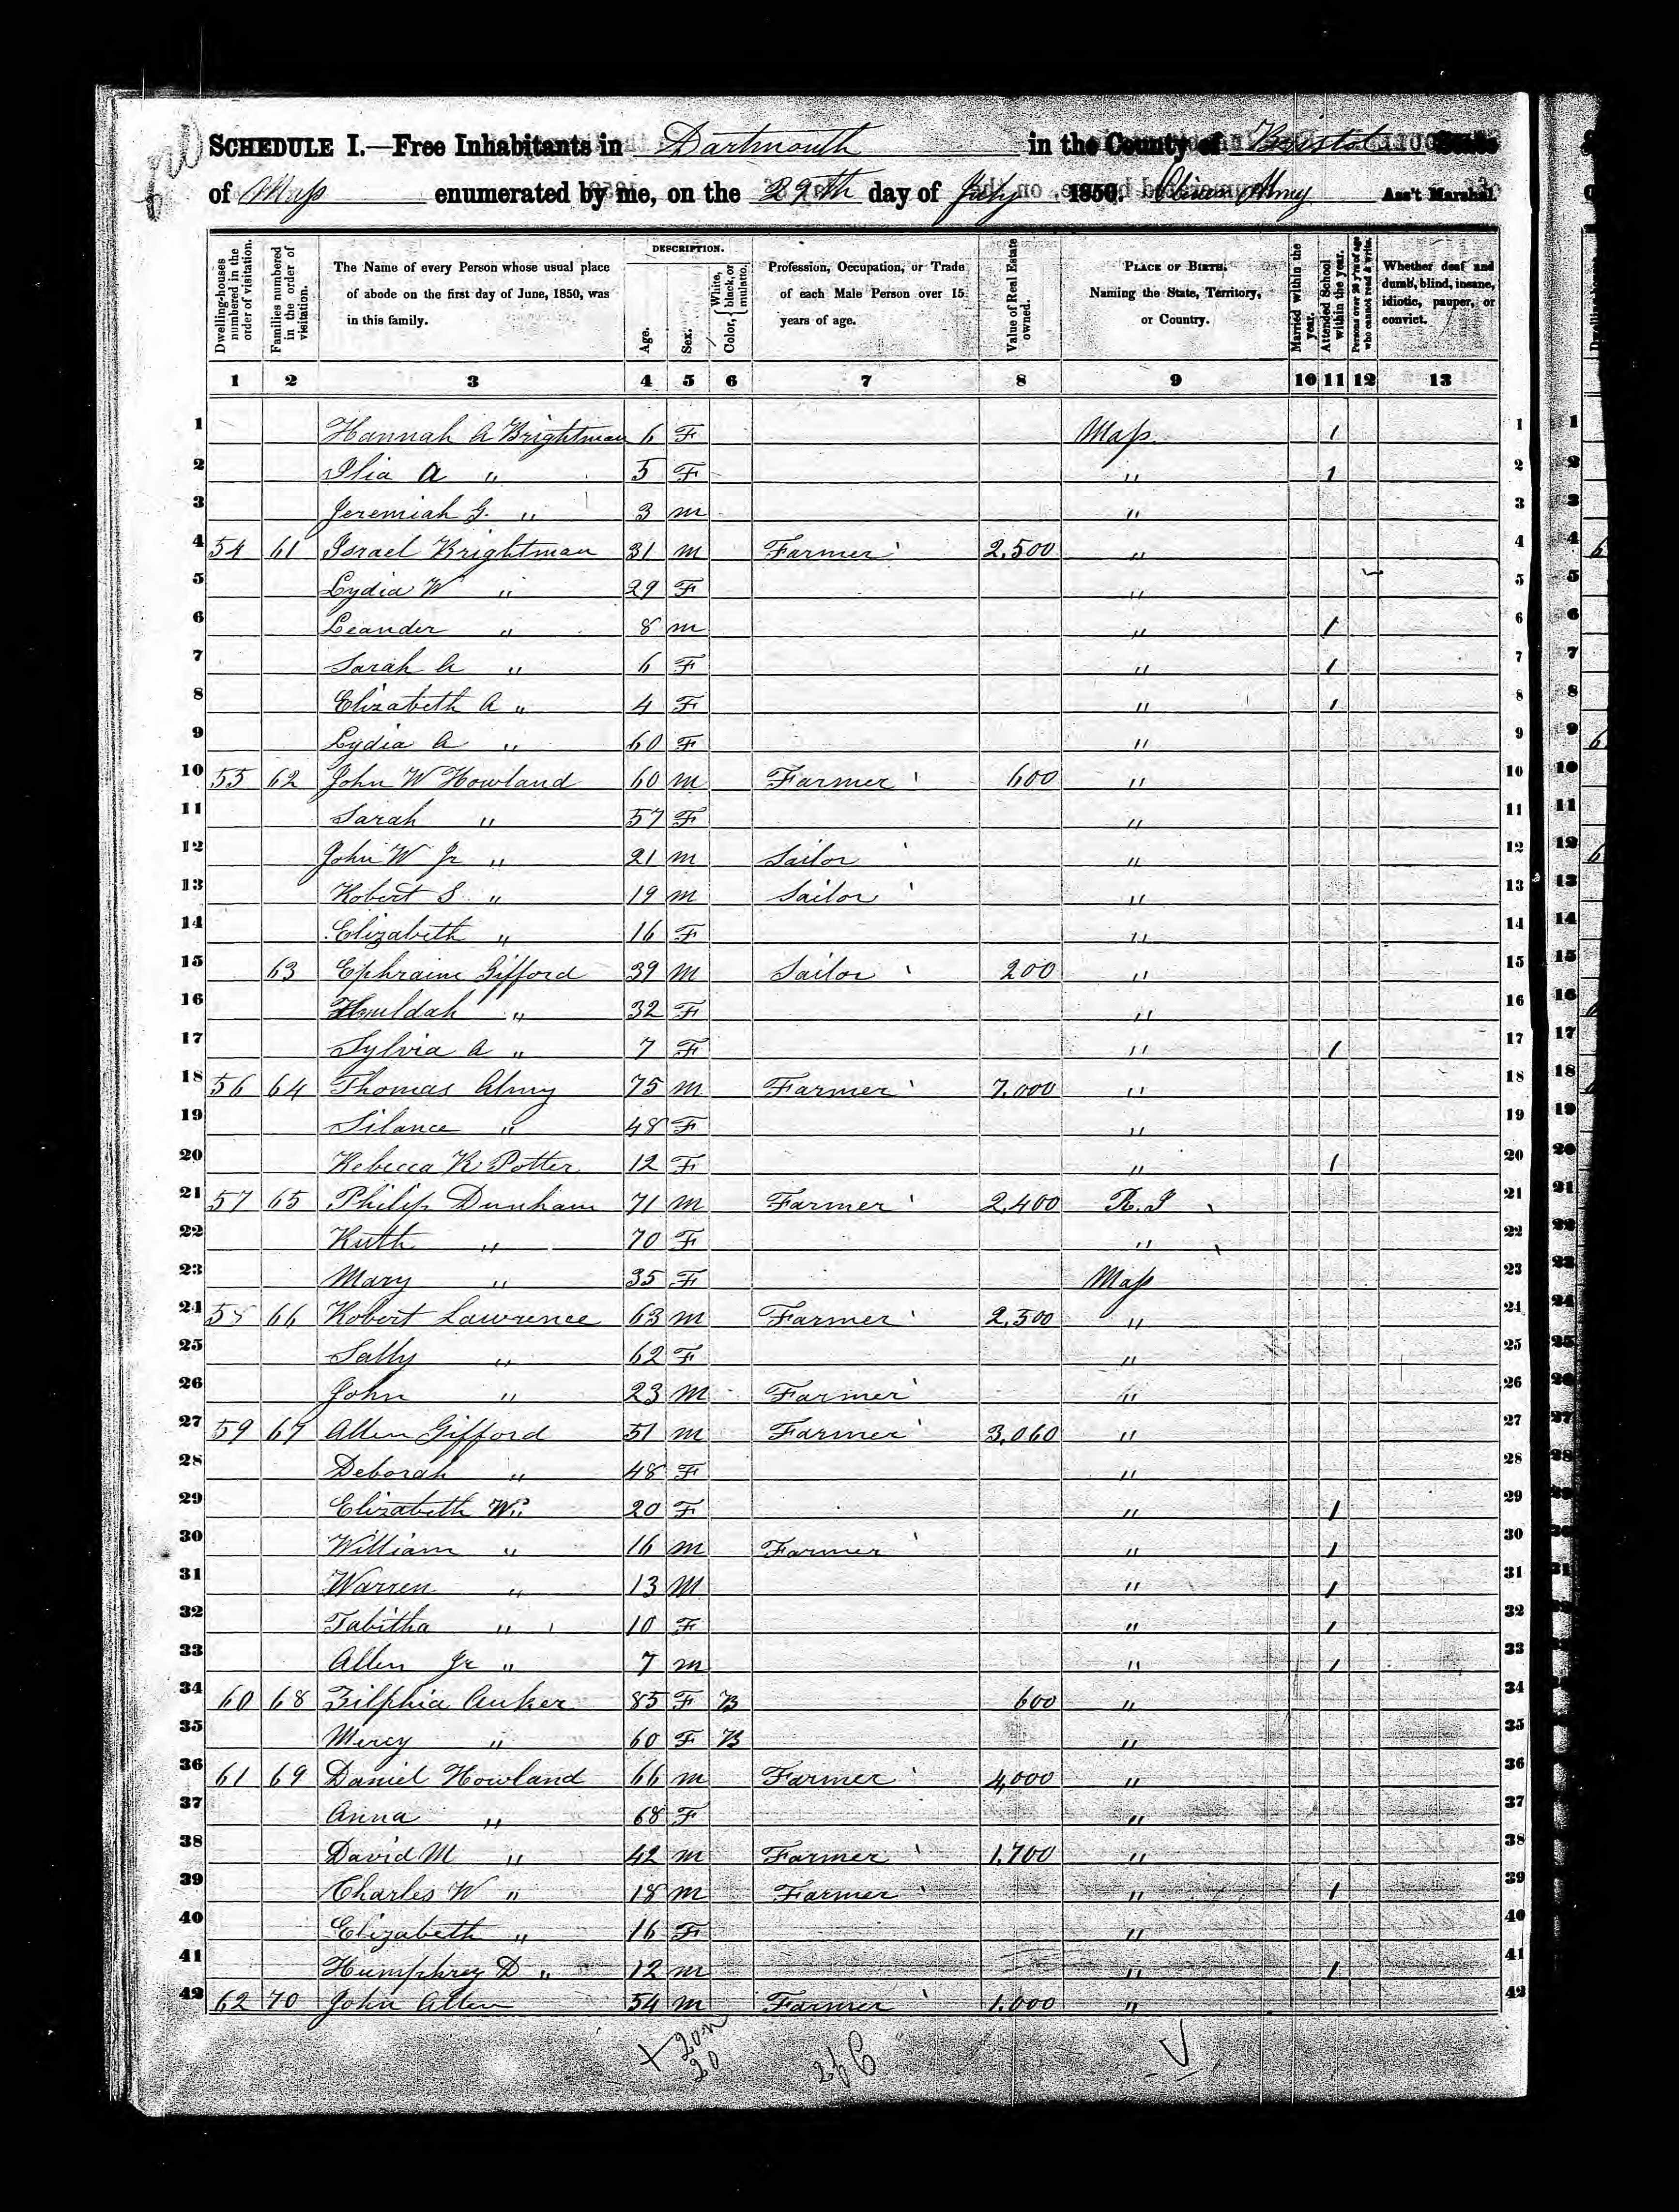 SCHEDULE I.—Free Inhabitants in Dartmouth in the County of Bristol State
of Mass enumerated by me, on the 29th day of July 1850. Almy Ass't Marshal.
Dwelling-houses numbered in the order of visitation.
Families numbered in the order of visitation.
The Name of every Person whose usual place of abode on the first day of June, 1850, was in this family.
DESCRIPTION.
Age.
Sex.
Color, { White, black, or mulatto.
Profession, Occupation, or Trade of each Male Person over 15 years of age.
Value of Real Estate owned.
PLACE OF BIRTH. Naming the State, Territory, or Country.
Married within the year.
Attended School within the year.
Persons over 20 y'rs of age who cannot read & write.
Whether deaf and dumb, blind, insane, idiotic, pauper, or convict.
1 2 3 4 5 6 7 8 9 10 11 12 13
1 Hannah A Brightman 6 F Mass 1 1
2 A " 5 F " 1 2
3 Jeremiah G. " 3 m " 3
4 54 61 Israel Brightman 31 m Farmer 2,500 " 4
5 Lydia W " 29 F " 5
6 Leander " 8 m " 1 6
7 Sarah A " 6 F " 1 7
8 Elizabeth A " 4 F " 1 8
9 Lydia A " 60 F " 9
10 55 62 John W Howland 60 m Farmer 600 " 10
11 Sarah " 57 F " 11
12 John W Jr " 21 m Sailor " 12
13 Robert S " 19 m Sailor " 13
14 Elizabeth " 16 F " 14
15 63 Ephraim Gifford 39 m Sailor 200 " 15
16 Huldah " 32 F " 16
17 Sylvia A " 7 F " 1 17
18 56 64 Thomas Almy 75 m Farmer 7,000 " 18
19 Silance " 48 F " 19
20 Rebecca R Potter 12 F " 1 20
21 57 65 Philip Dunham 71 m Farmer 2,400 R.I 21
22 Ruth " 70 F " 22
23 Mary " 35 F Mass 23
24 58 66 Robert Lawrence 63 m Farmer 2,500 " 24
25 Sally " 62 F " 25
26 John " 23 m Farmer " 26
27 59 67 Allen Gifford 51 m Farmer 3,060 " 27
28 Deborah " 48 F " 28
29 Elizabeth W " 20 F " 1 29
30 William " 16 m Farmer " 1 30
31 Warren " 13 M " 1 31
32 Tabitha " 10 F " 1 32
33 Allen Jr " 7 m " 1 33
34 60 68 Zilphia Auker 85 F B 600 " 34
35 Mercy " 60 F B " 35
36 61 69 Daniel Howland 66 m Farmer 4,000 " 36
37 Anna " 68 F " 37
38 David M " 42 m Farmer 1,700 " 38
39 Charles W " 18 m Farmer " 1 39
40 Elizabeth " 16 F " 40
41 Humphrey D " 12 m " 1 41
42 62 70 John Allen 54 m Farmer 1,000 " 42